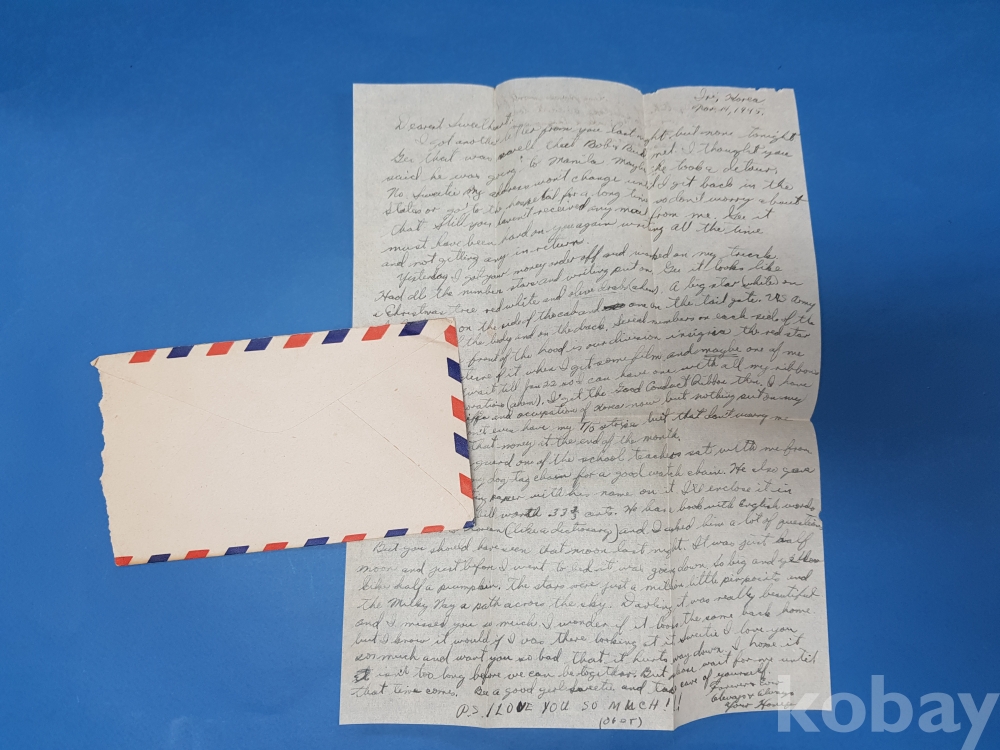 Iri, Korea
Nov. 11, 1945.
Dearest Sweetheart:
I got another letter from you last night but none tonight
Gee that was swell that Bob & met. I thought you
said he was going to Manila. Maybe he took a detour.
No, Sweetie my address won't change until I get back in the
States or go to the hospital for a long time so don't worry about
that. Still you haven't received any mail from me. Gee it
must have been hard on you again writing all the time
and not getting any in return.
Yesterday I got your money order off and worked on my truck.
Had all the number stars and writing put on. Gee it looks like
a Christmas tree red white and olive drab (ahem). A big star (white) on
on the side of the cab and one on the tail gate. U.S. Army
the body and on the back, Serial numbers on each side of the
front of the hood is our division insignia the red star
of it when I get some film and maybe one of me
wait till Jan 22 so I can have one with all my ribbons
(ahem). I'll get the Good Conduct Ribbon then, I have
and occupation of Korea now, but nothing put on my
even have my T/5 stripes but that don't worry me
that money at the end of the month.
guard one of the school teachers sat with me from
dog tag chain for a good watch chain. He also gave
paper with his name on it. I'll enclose it in
worth 33¢ cents. He has a book with English words
(like a dictionary) and I asked him a lot of questions
But you should have seen that moon last night. It was just a half
moon and just before I went to bed it was going down. So big and yellow
like half a pumpkin. The stars were just a million little pinpoints and
the Milky Way a path across the sky. Darling it was really beautiful
and I missed you so much. I wonder if it looks the same back home
but I know it would if I was there looking at it. Sweetie I love you
so much and want you so bad that it hurts way down. I hope it
isn't too long before we can be together. But please wait for me until
that time comes. Be a good girl Sweetie and take care of yourself.
Forever &
Always & Always
Your Honey
P.S. I LOVE YOU SO MUCH!!!
(over)
kobay